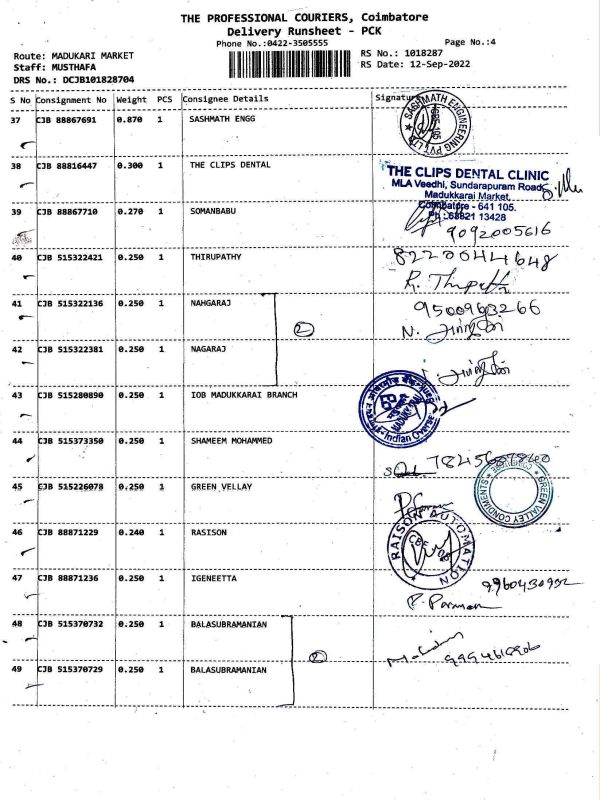 THE PROFESSIONAL COURIERS, Coimbatore
Delivery Runsheet - PCK
Phone No.:0422-3505555
Page No.:4
Route: MADUKARI MARKET
RS No.: 1018287
Staff: MUSTHAFA
RS Date: 12-Sep-2022
DRS No.: DCJB101828704
S No Consignment No Weight PCS Consignee Details Signature
37 CJB 88867691 0.870 1 SASHMATH ENGG
SASHMATH ENGINEERING PVT LTD
38 CJB 88816447 0.300 1 THE CLIPS DENTAL
THE CLIPS DENTAL CLINIC
MLA Veedhi, Sundarapuram Road,
Madukkarai Market,
Coimbatore - 641 105.
Ph : 63821 13428
39 CJB 88867710 0.270 1 SOMANBABU
9092005616
40 CJB 515322421 0.250 1 THIRUPATHY
8220044648
41 CJB 515322136 0.250 1 NAHGARAJ
9500963266
2
42 CJB 515322381 0.250 1 NAGARAJ
43 CJB 515280890 0.250 1 IOB MADUKKARAI BRANCH
44 CJB 515373350 0.250 1 SHAMEEM MOHAMMED
45 CJB 515226078 0.250 1 GREEN VELLAY
GREEN VALLEY CONDIMENTS
46 CJB 88871229 0.240 1 RASISON
RAISON AUTOMATION
47 CJB 88871236 0.250 1 IGENEETTA
P. Paraman
48 CJB 515370732 0.250 1 BALASUBRAMANIAN
2
49 CJB 515370729 0.250 1 BALASUBRAMANIAN